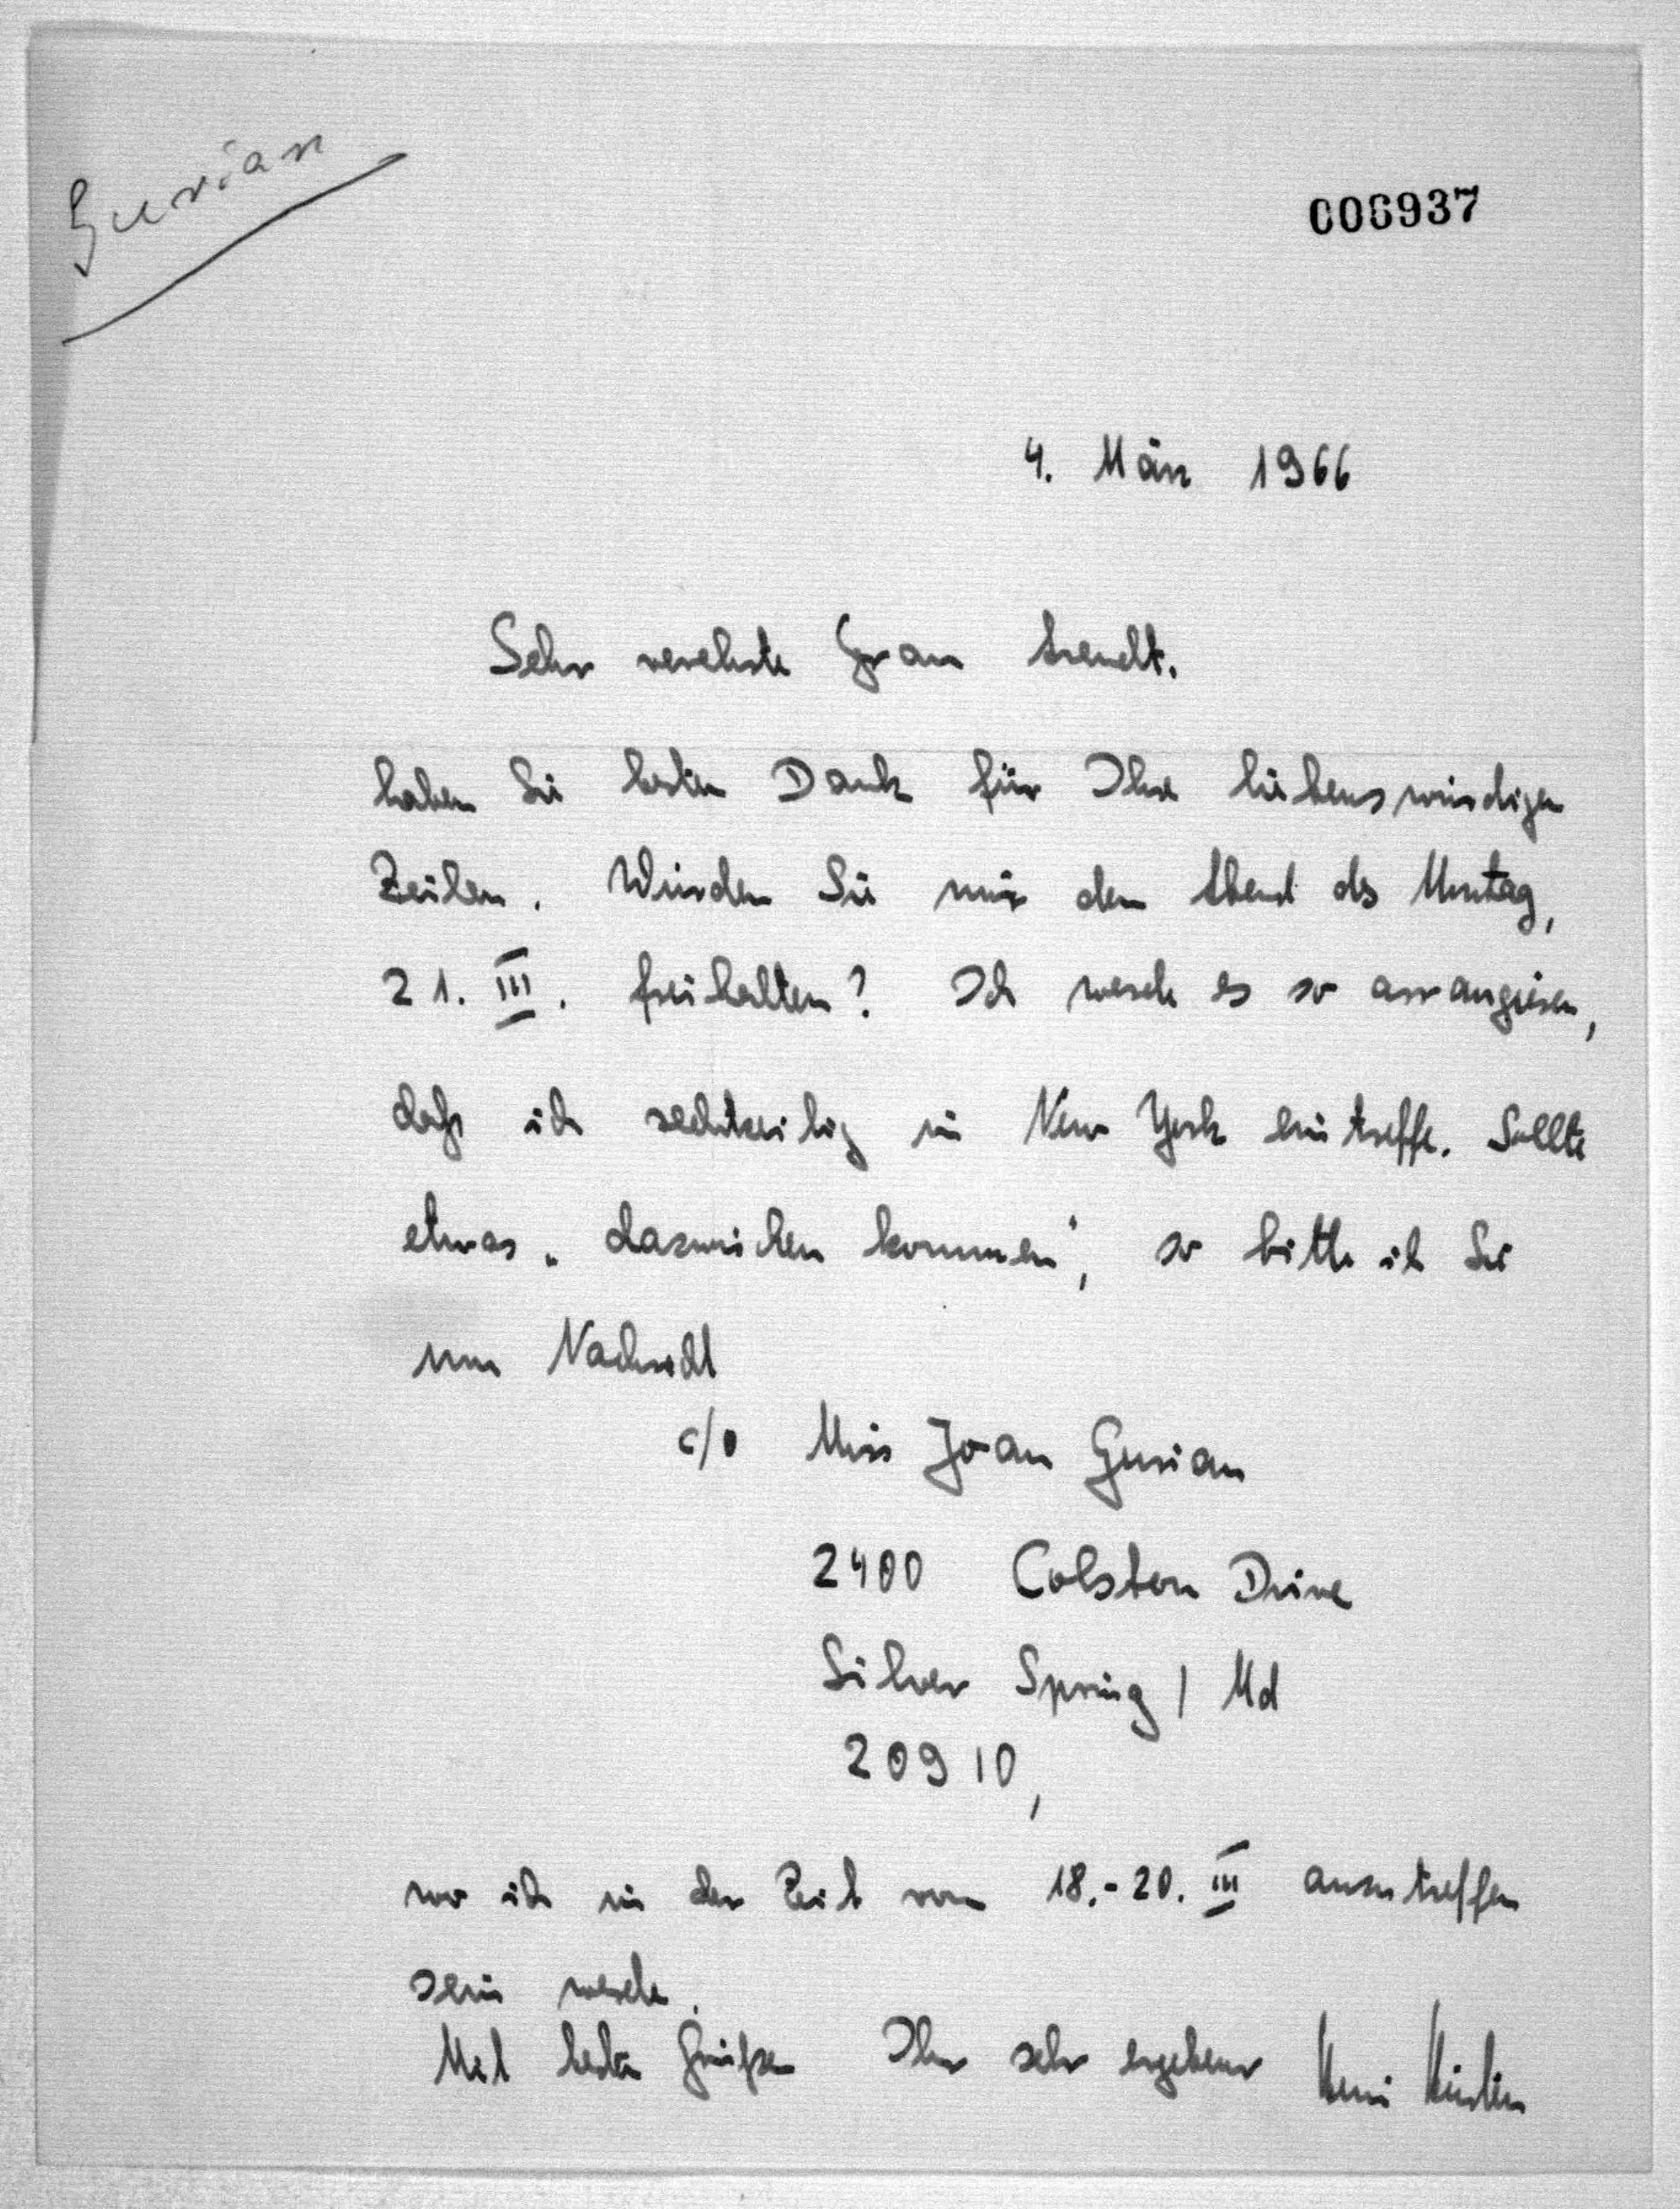 Gurian
006937
4. März 1966
Sehr verehrte Frau Arendt,
haben Sie besten Dank für Ihre liebenswürdigen
Zeilen. Würden Sie mir den Abend des Montag,
21. III. freihalten? Ich werde es so arrangieren,
daß ich rechtzeitig in New York eintreffe. Sollte
etwas „dazwischen kommen", so bitte ich Sie
um Nachricht
c/o Miss Joan Gurian
2400 Colston Drive
Silver Spring / Md
20910,
wo ich in der Zeit vom 18.-20. III anzutreffen
sein werde.
Mit besten Grüßen Ihr sehr ergebener